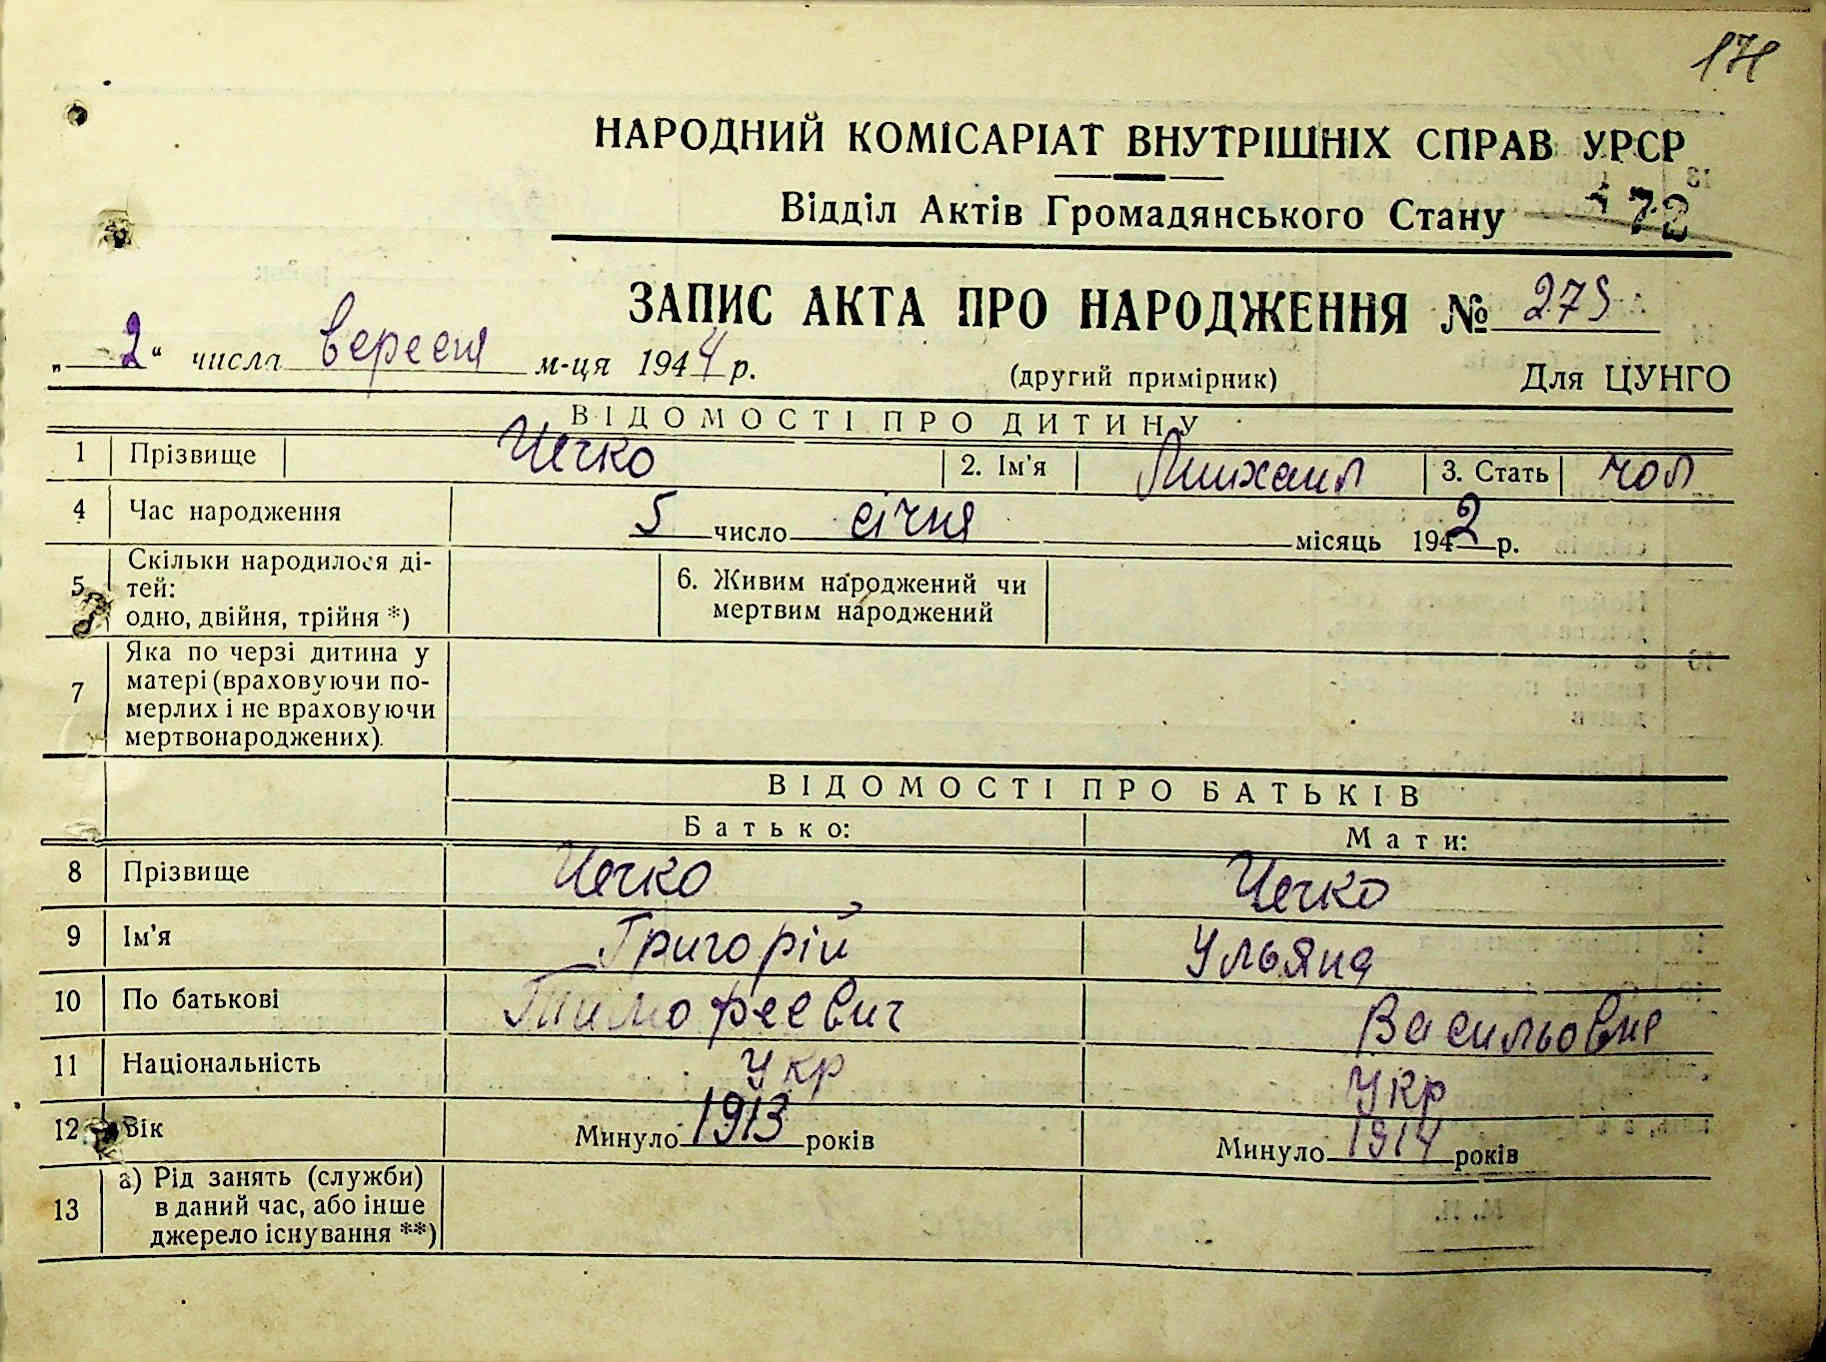 171
НАРОДНИЙ КОМІСАРІАТ ВНУТРІШНІХ СПРАВ УРСР
Відділ Актів Громадянського Стану 172
ЗАПИС АКТА ПРО НАРОДЖЕННЯ № 275
„ 2 “ числа вересня м-ця 1944 р. (другий примірник) Для ЦУНГО
ВІДОМОСТІ ПРО ДИТИНУ
1 Прізвище Чечко 2. Ім'я Михаил 3. Стать чол
4 Час народження 5 число січня місяць 1942 р.
5 Скільки народилося ді-
тей:
одно, двійня, трійня *)
6. Живим народжений чи
мертвим народжений
7 Яка по черзі дитина у
матері (враховуючи по-
мерлих і не враховуючи
мертвонароджених).
ВІДОМОСТІ ПРО БАТЬКІВ
Батько: Мати:
8 Прізвище Чечко Чечко
9 Ім'я Григорій Ульяна
10 По батькові Тимофеевич Васильовна
11 Національність Укр Укр
12 Вік Минуло 1913 років Минуло 1914 років
13 а) Рід занять (служби)
в даний час, або інше
джерело існування **)